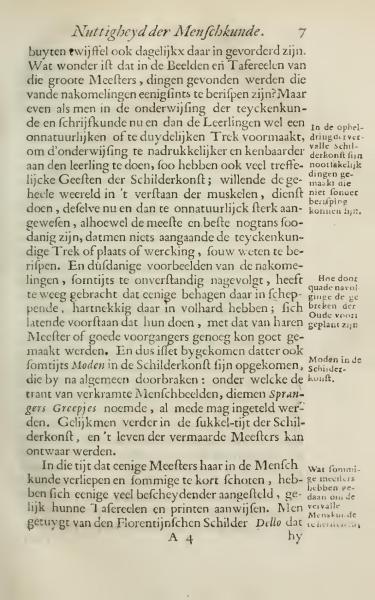 Nuttigheyd der Menschkunde. 7
buyten twijffel ook dagelijkx daar in gevorderd zijn.
Wat wonder ist dat in de Beelden en Tafereelen van
die groote Meesters, dingen gevonden werden die
vande nakomelingen eenigsints te berispen zijn? Maar
even als men in de onderwijsing der teyckenkun-
de en schrijfkunde nu en dan de Leerlingen wel een
onnatuurlijken of te duydelijken Trek voormaakt,
om d'onderwijsing te nadrukkelijker en kenbaarder
aan den leerling te doen, soo hebben ook veel treffe-
lijcke Geesten der Schilderkonst; willende de ge-
heele weereld in 't verstaan der muskelen, dienst
doen, deselve nu en dan te onnatuurlijck sterk aan-
gewesen, alhoewel de meeste en beste nogtans soo-
danig zijn, datmen niets aangaande de teyckenkun-
dige Trek of plaats of wercking, souw weten te be-
rispen. En dusdanige voorbeelden van de nakome-
lingen, somtijts te onverstandig nagevolgt, heeft
te weeg gebracht dat eenige behagen daar in schep-
pende, hartnekkig daar in volhard hebben; sich
latende voorstaan dat hun doen, met dat van haren
Meester of goede voorgangers genoeg kon goet ge-
maakt werden. En dus isset bygekomen datter ook
somtijts Moden in de Schilderkonst sijn opgekomen,
die by na algemeen doorbraken: onder welcke de
trant van verkramte Menschbeelden, diemen Spran-
gers Greepjes noemde, al mede mag ingeteld wer-
den. Gelijkmen verder in de sukkel-tijt der Schil-
derkonst, en 't leven der vermaarde Meesters kan
ontwaar werden.
In die tijt dat eenige Meesters haar in de Mensch
kunde verliepen en sommige te kort schoten, heb-
ben sich eenige veel bescheydender aangesteld, ge-
lijk hunne Tafereelen en printen aanwijsen. Men
getuygt van den Florentijnschen Schilder Dello dat
A 4 hy
In de ophel-
valle Schil-
derkonst sijn
nootsakelijk
dingen ge-
maakt die
niet sonder
berisping
konnen sijn.
Hoe door
quade navol
ginge de ge
breken der
Oude voort
geplant zijn
Moden in de
Schilder-
konst.
Wat sommi-
ge meesters
hebben ge-
daan om de
vervalle
Menskunde